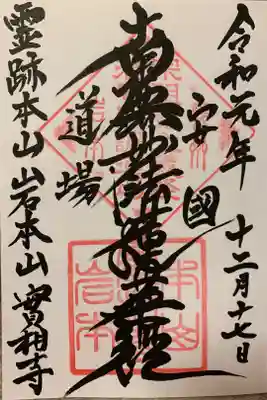 令和元年 十二月十七日
安國
南無妙法蓮華經
道場
霊跡本山岩本山實相寺